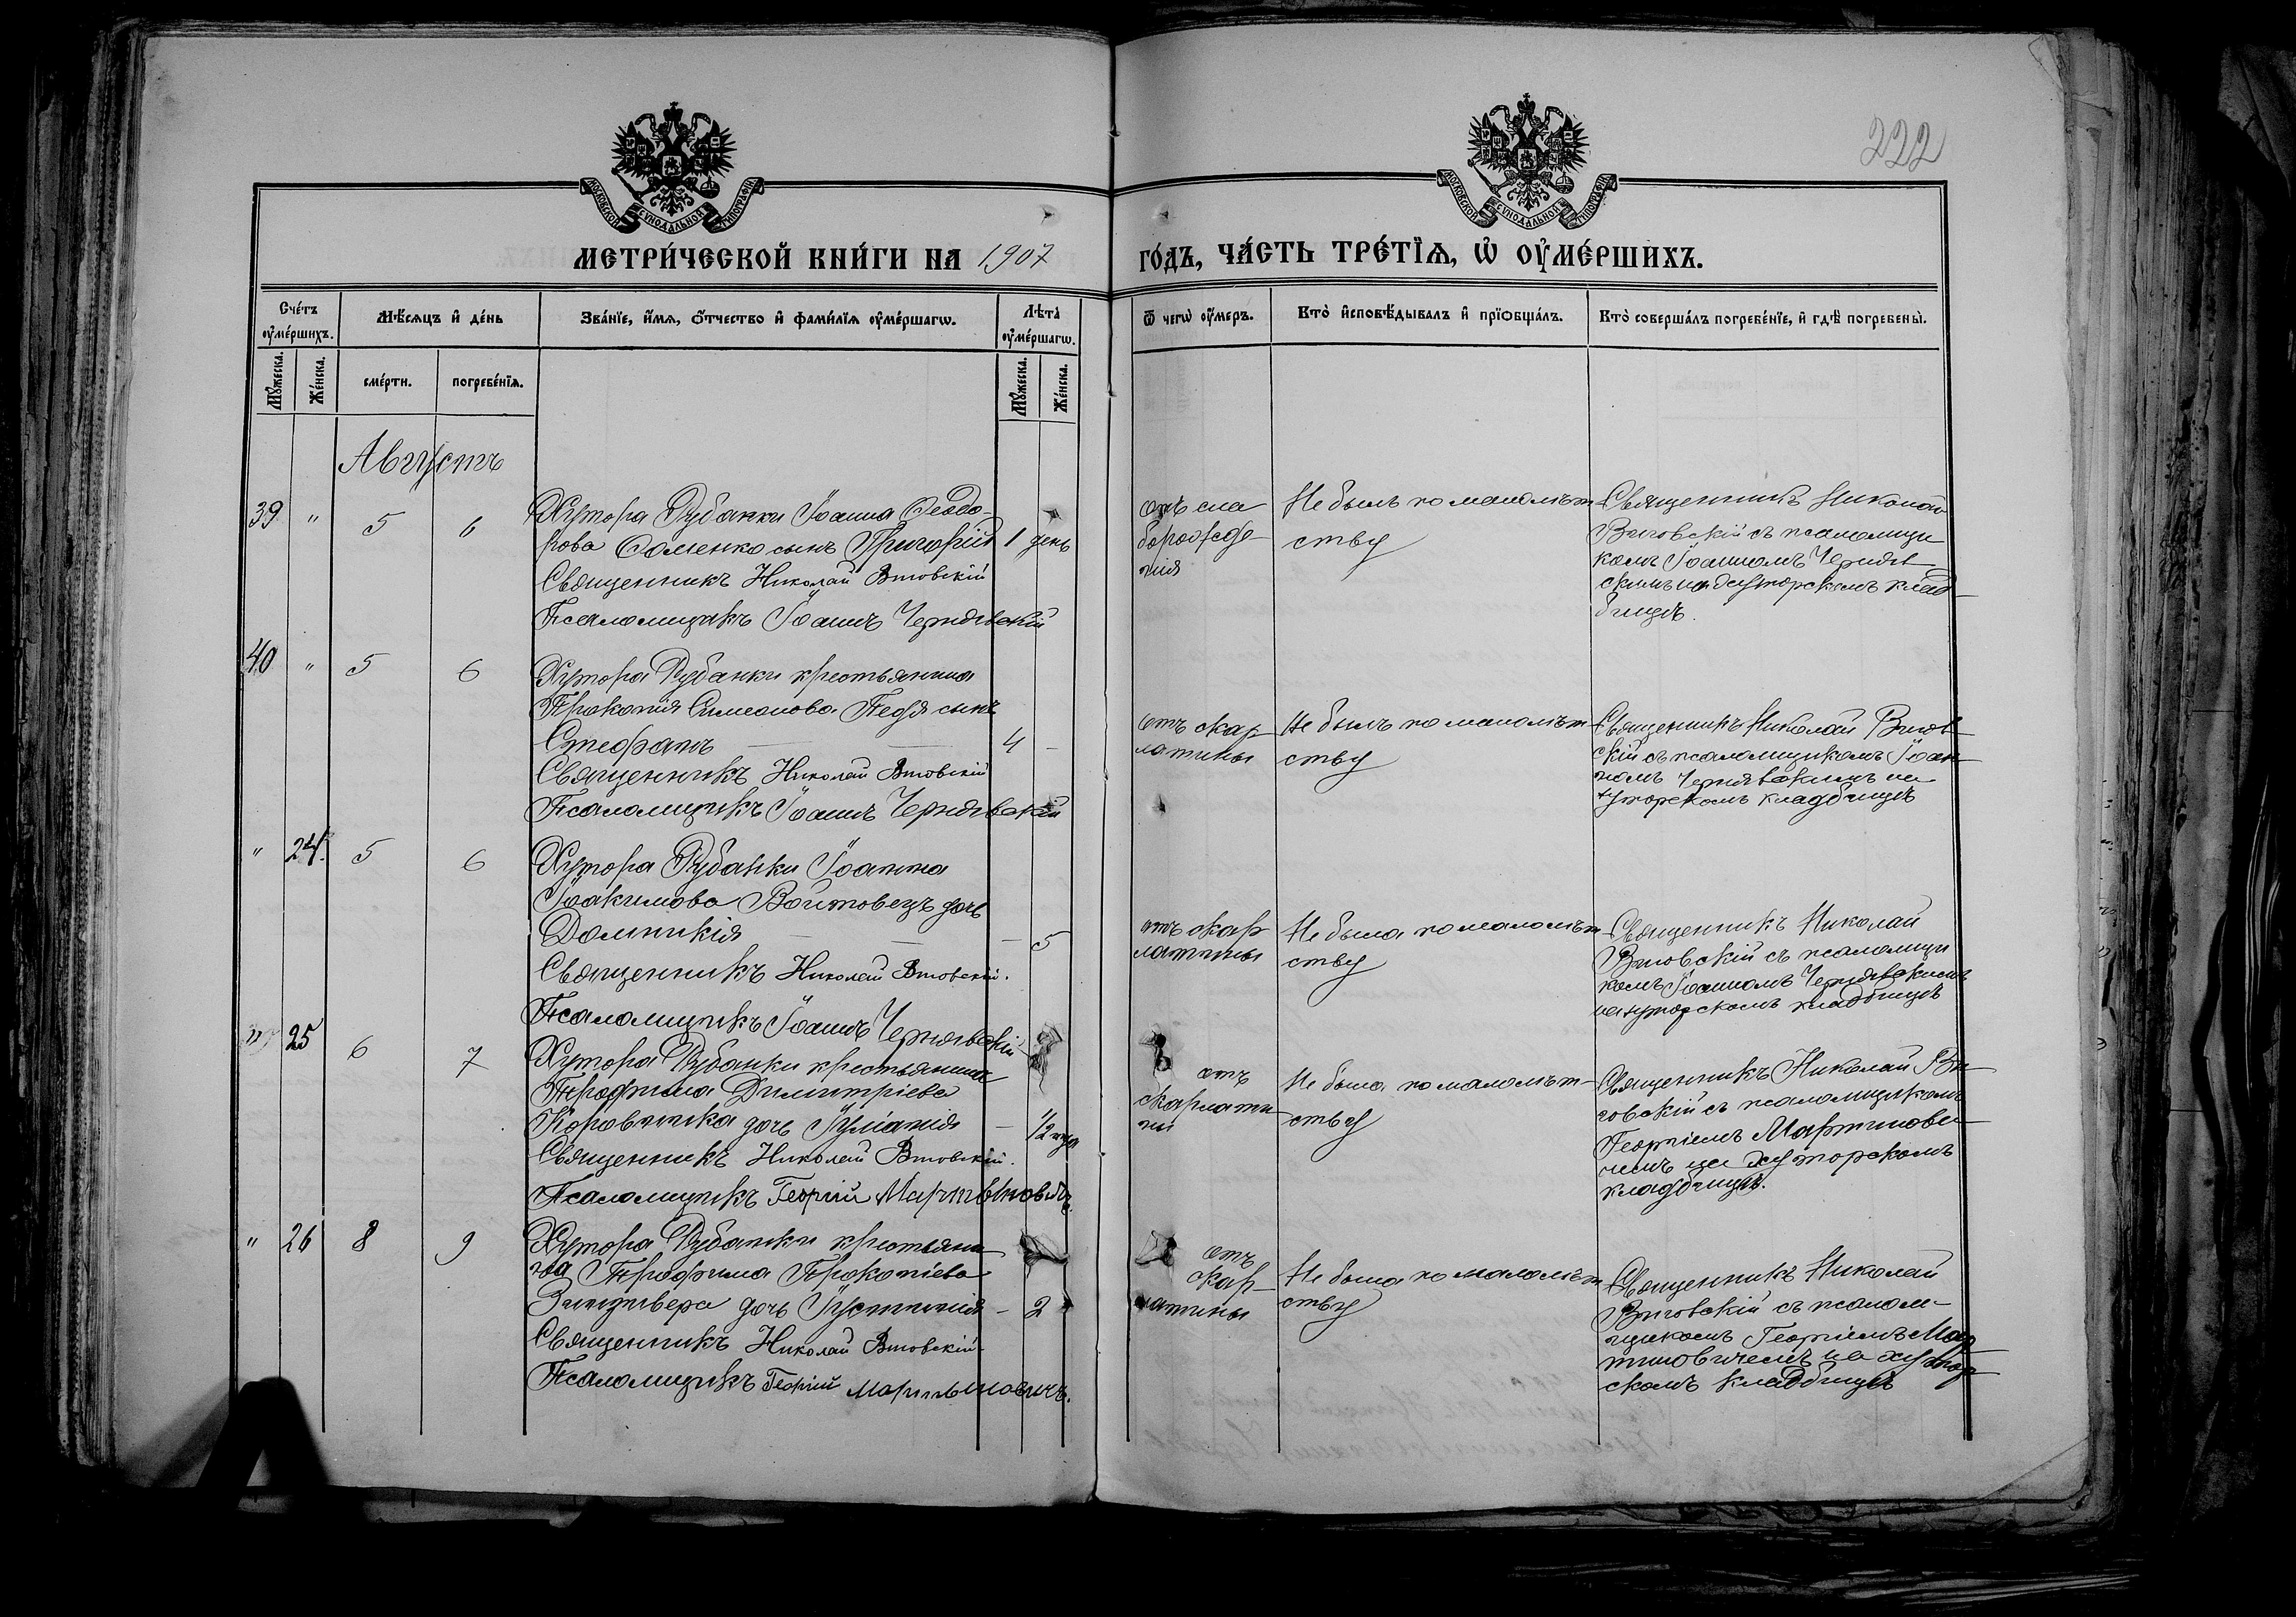 222
МОСКОВСКОЙ СѴНОДАЛЬНОЙ ТИПОГРАФІИ
МОСКОВСКОЙ СѴНОДАЛЬНОЙ ТИПОГРАФІИ
МЕТРИ́ЧЕСКОЙ КНИ́ГИ НА 1907
ГО́ДЪ, ЧА́СТЬ ТРЕ́ТЇѦ, Ѡ҆ ОУ҆МЕ́РШИХЪ.
Сче́тъ оу҆ме́ршихъ.
Мѣ́сѧцъ и҆ де́нь
Зва́нїе, и҆́мѧ, ѻ҆́тчество и҆ фами́лїѧ оу҆ме́ршагѡ.
Лѣта̀ оу҆ме́ршагѡ.
Ѿ чегѡ̀ оу҆́меръ.
Кто̀ и҆сповѣ́дывалъ и҆ прїѡбща́лъ.
Кто̀ соверша́лъ погребе́нїе, и҆ гдѣ̀ погребены̀.
Мꙋ́жеска.
Же́нска.
сме́рти.
погребе́нїѧ.
Мꙋ́жеска.
Же́нска.
Августъ
39 " 5 6
Хутора Рубанки Іоанна Ѳеодо-
рова Соменко сынъ Григорій 1 день
Священникъ Николай Вговскій
Псаломщикъ Іоаннъ Чернявскій
отъ сла
борожде-
нія
Не былъ по малолѣт
ству
Священникъ Николай
Выговскій съ псаломщи
комъ Іоанномъ Чернявс
скимъ на хуторскомъ клад-
бищѣ.
40 " 5 6
Хутора Рубанки крестьянина
Прокопія Симеонова Педя сынъ
Стефанъ 4 -
Священникъ Николай Вговскій
Псаломщикъ Іоаннъ Чернявскій
отъ скар
латины
Не былъ по малолѣт
ству
Священникъ Николай Выгов-
скій съ псаломщикомъ Іоан-
номъ Чернявскимъ на
хуторскомъ кладбищѣ
" 24. 5 6
Хутора Рубанки Іоанна
Іоакимова Войтовецъ дочь
Домникія - 5
Священникъ Николай Вговскій.
Псаломщикъ Іоаннъ Чернявскій
отъ скар
латины
Не была по малолѣт
ству
Священникъ Николай
Выговскій съ псаломщи
комъ Іоанномъ Чернявскимъ
на хуторскомъ кладбищѣ
" 25 6 7
Хутора Рубанки крестьянина
Трофима Димитріева
дочь Іуліанія - 1/2 года
Священникъ Николай Вговскій.
Псаломщикъ Георгій Мартыновичъ.
отъ
скарлати
ны
Не была по малолѣт-
ству
Священникъ Николай Вы-
говскій съ псаломщикомъ
Георгіемъ Мартинови-
чемъ на хуторскомъ
кладбищѣ.
" 26 8 9
Хутора Рубанки крестьяни-
на Трофима Прокопіева
дочь Іустинія - 2
Священникъ Николай Вговскій
Псаломщикъ Георгій Мартыновичъ.
отъ
скар-
латины
Не была по малолѣт
ству
Священникъ Николай
Выговскій съ псалом-
щикомъ Георгіемъ Мар
тиновичемъ на хутор
скомъ кладбищѣ